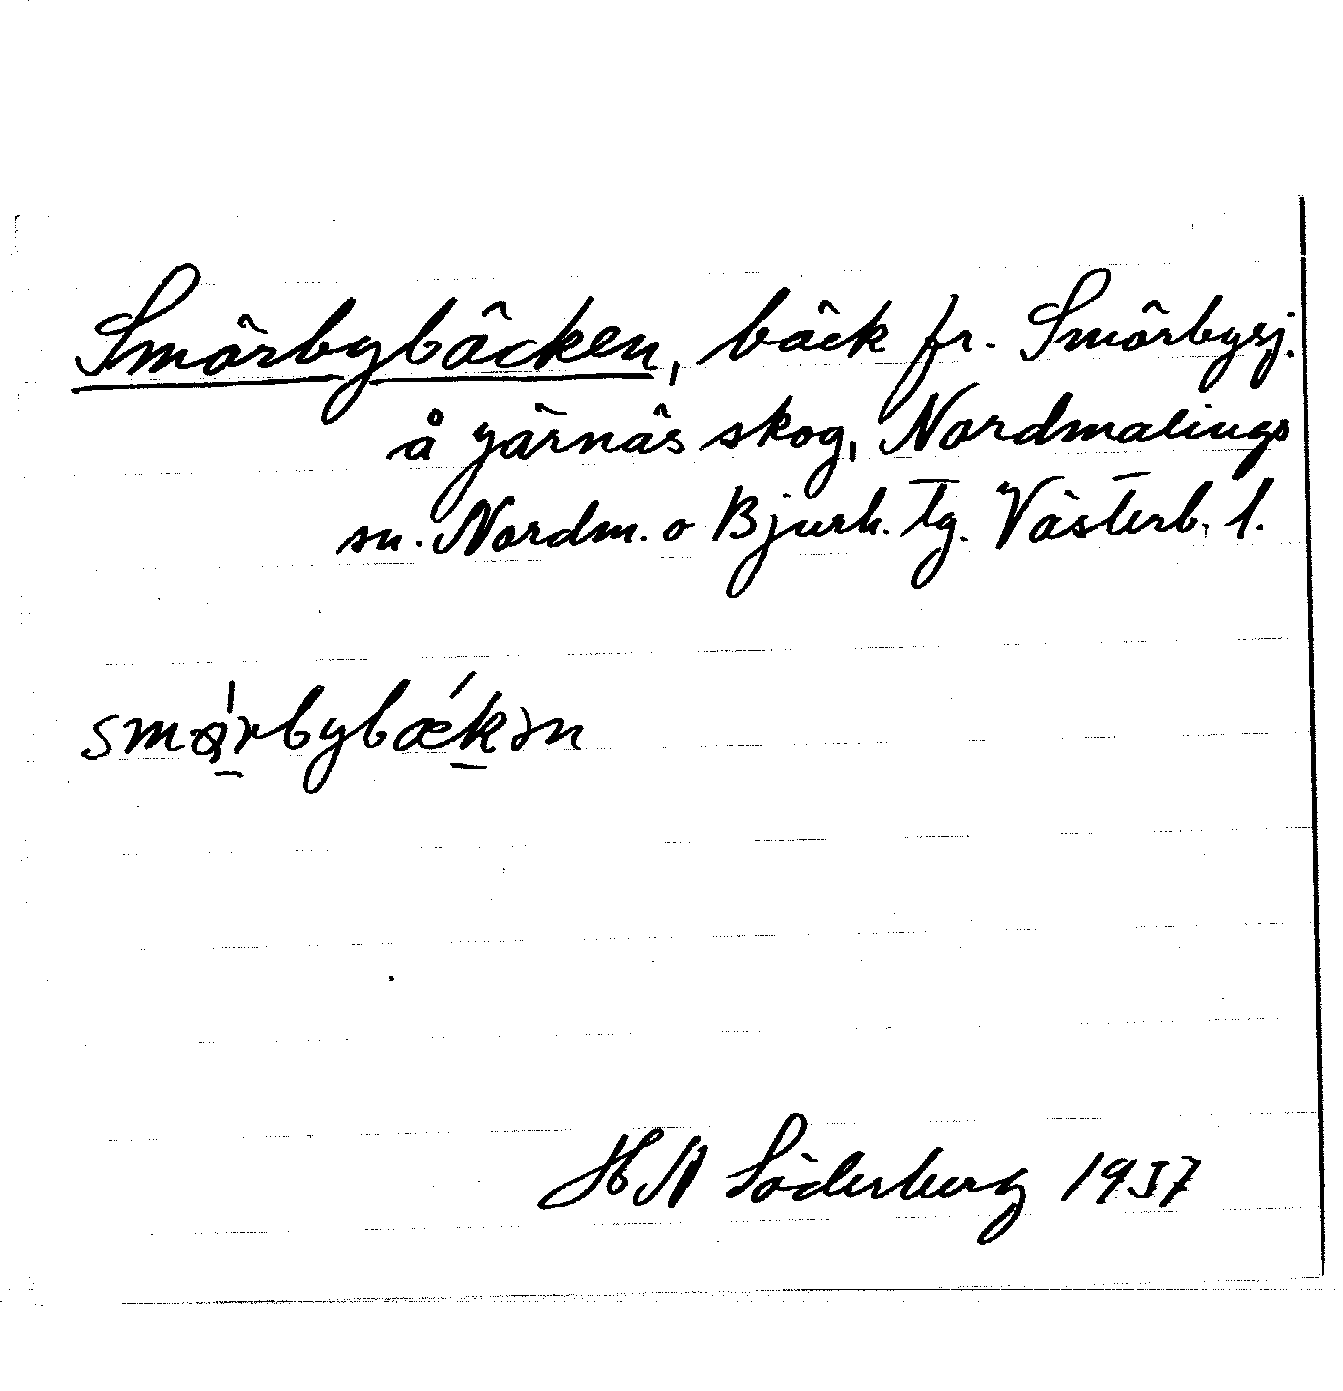 Smörbybäcken, bäck fr. Smörbysj.
å Järnäs skog, Nordmalings
sn. Nordm. o Bjurh. tg. Västerb. l.
HN Söderberg 1937